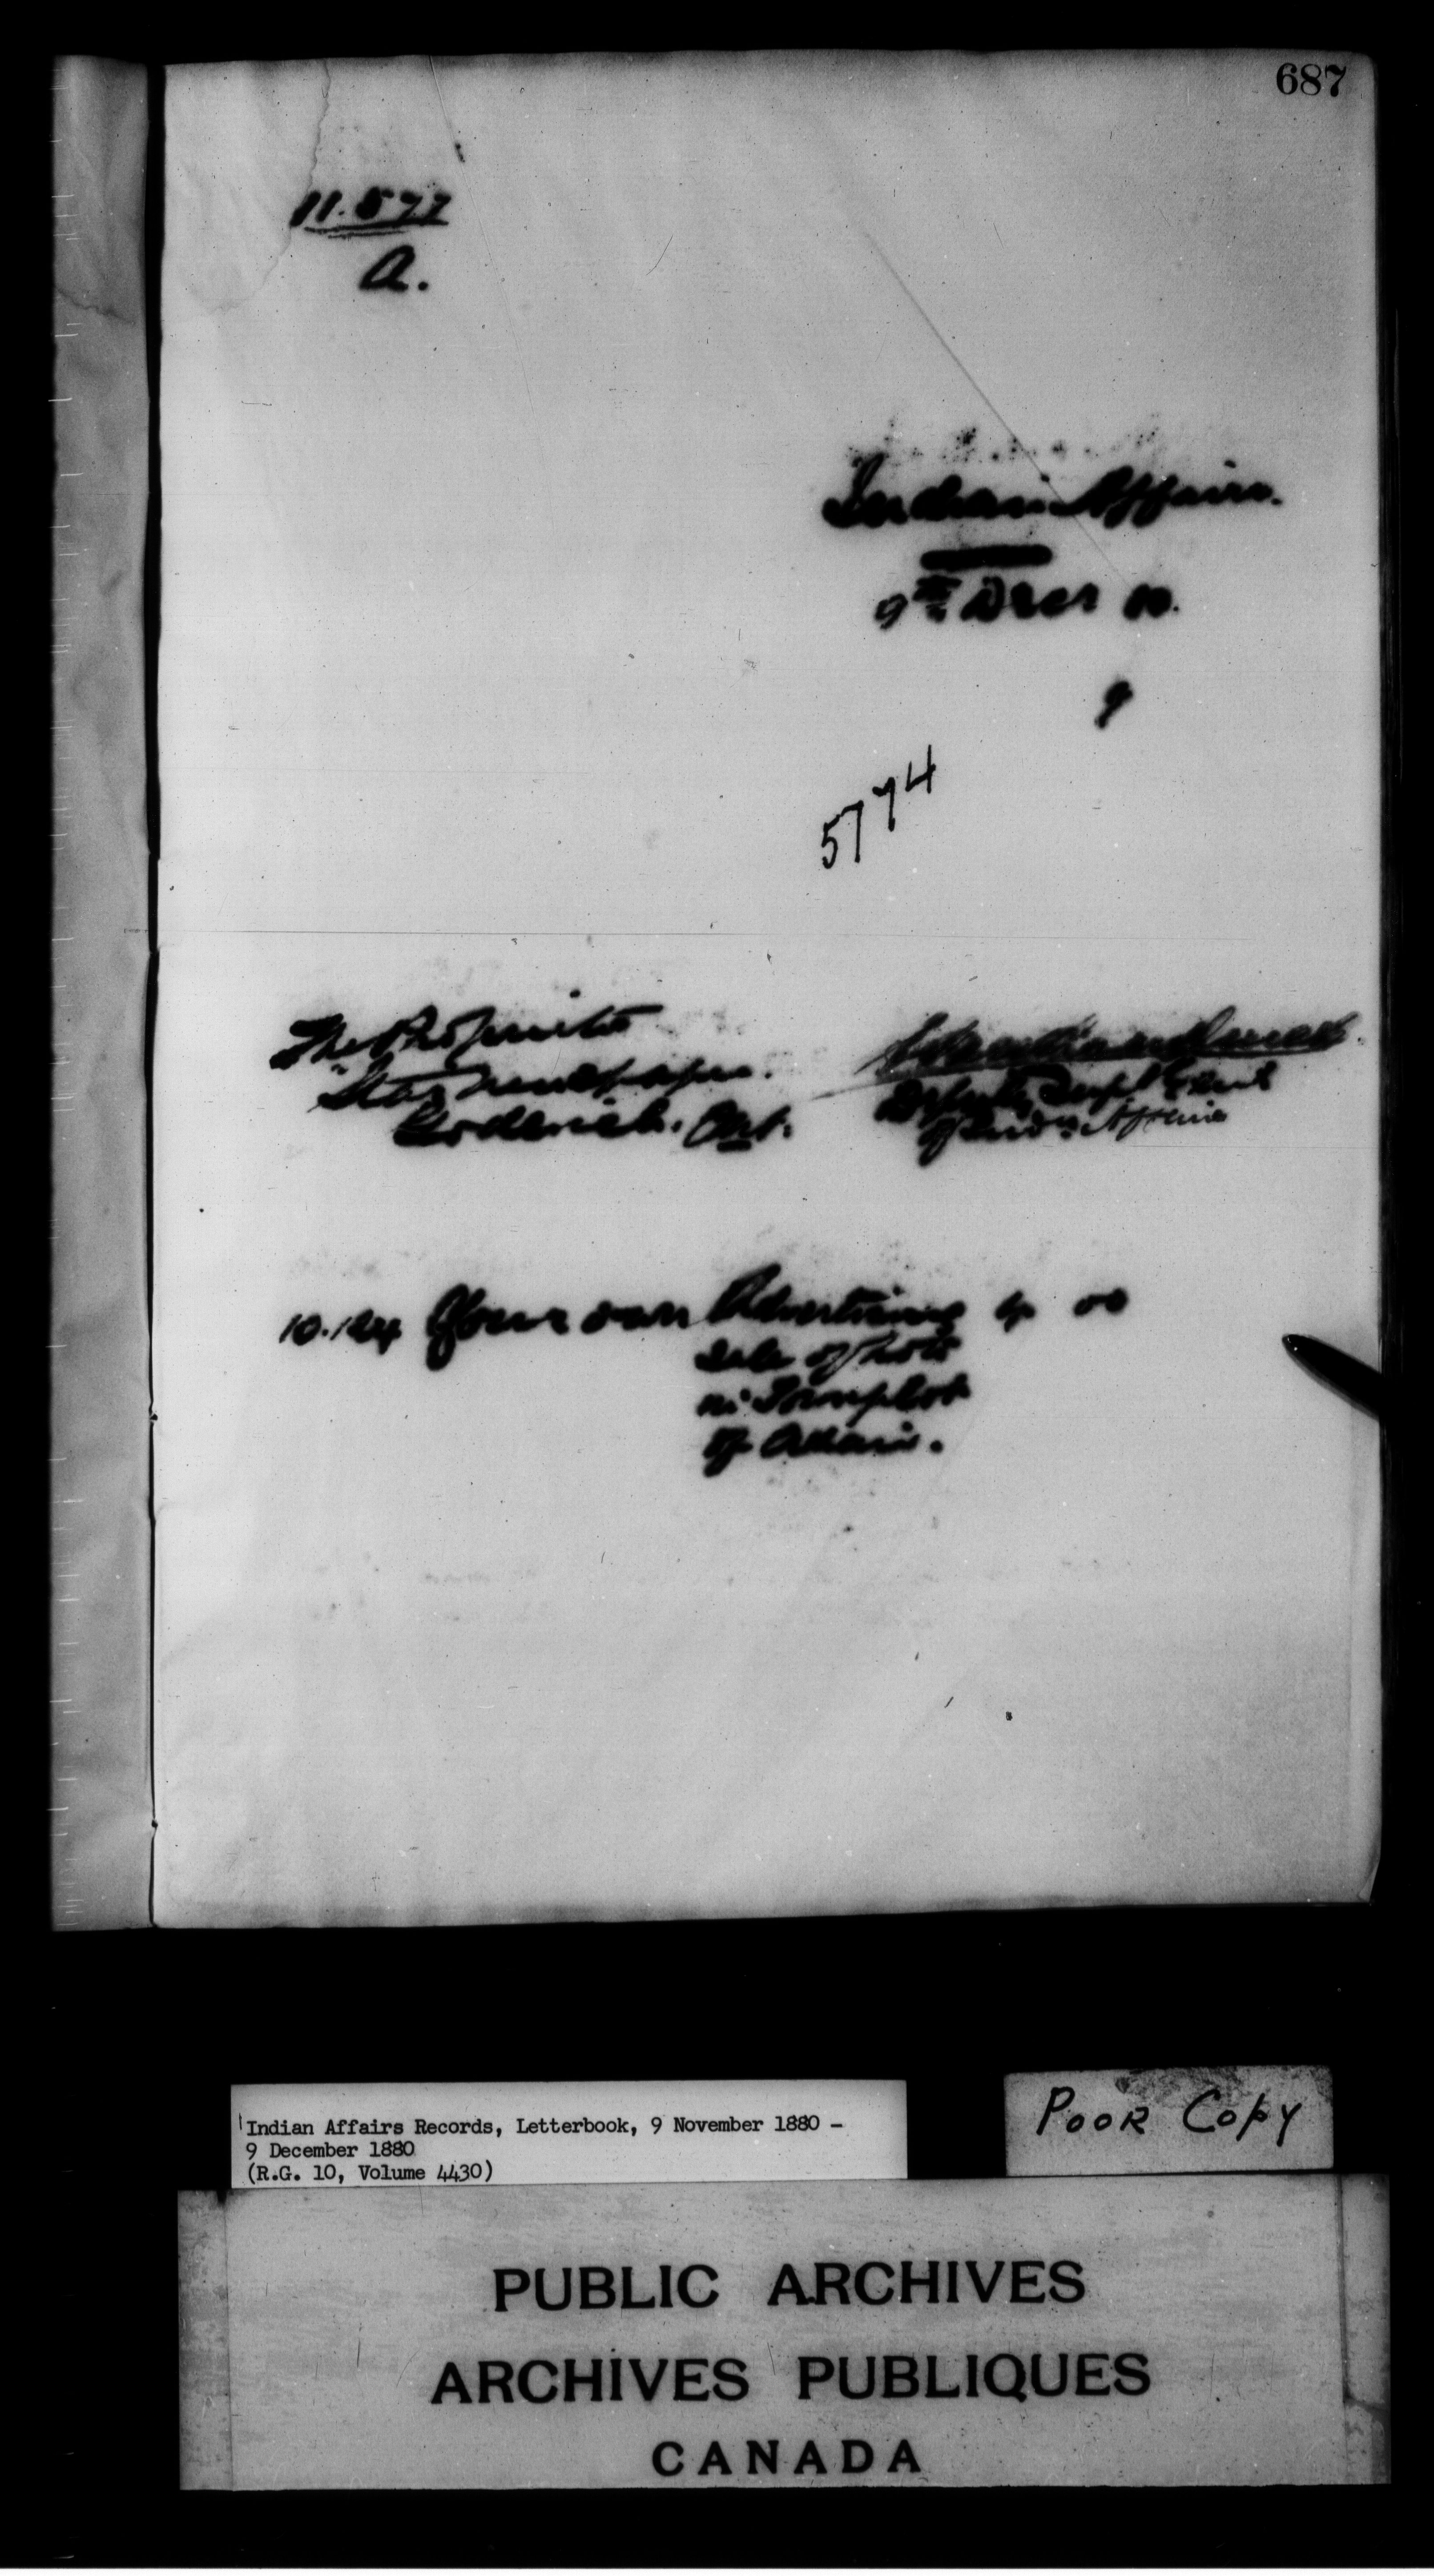 687
11.577
A.
Indian Affairs.
9th Decr 80.
9
5774
The Proprietor
"Star" Newspaper.
Goderich. Ont.
Deputy Supt Genl
of Indn. Affairs
10.124 Your own Advertising 4 00
Sale of Lots
in Townplot
of Adair.
Indian Affairs Records, Letterbook, 9 November 1880 -
9 December 1880
(R.G. 10, Volume 4430)
POOR COPY
PUBLIC ARCHIVES
ARCHIVES PUBLIQUES
CANADA